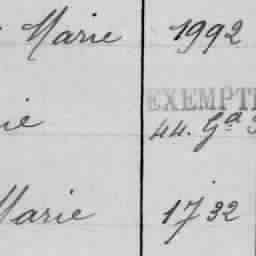 Marie 1992
EXEMPT
ie 44. Ga
Marie 1732